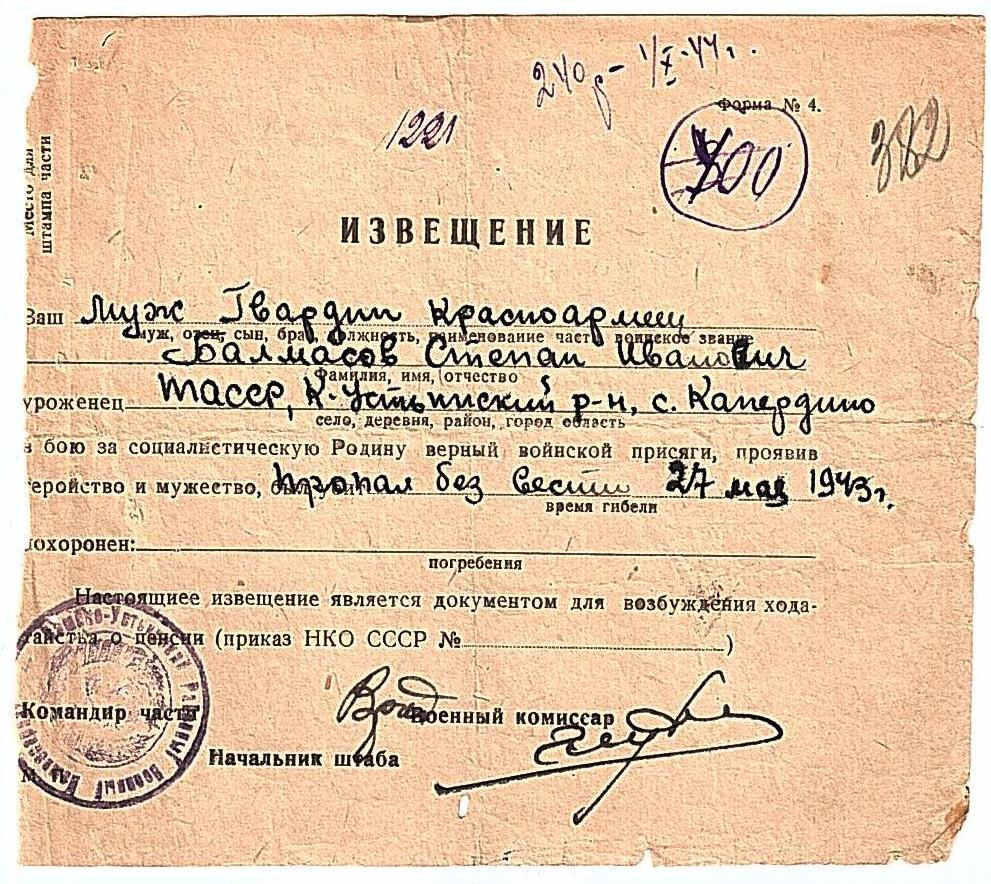 240р - 1/X-44г.
Форма № 4.
1221
300
382
Место для
штампа части
ИЗВЕЩЕНИЕ
Ваш Муж Гвардии Красноармеец
муж, отец, сын, брат, должность, наименование части, воинское звание
Балмасов Степан Иванович
фамилия, имя, отчество
уроженец ТАССР, К-Устьинский р-н, с. Капердино
село, деревня, район, город область
в бою за социалистическую Родину верный воинской присяги, проявив
геройство и мужество, пропал без вести 27 мая 1943г.
время гибели
похоронен:
погребения
Настоящиее извещение является документом для возбуждения хода-
тайства о пенсии (приказ НКО СССР №)
Командир части Врид Военный комиссар
Начальник штаба